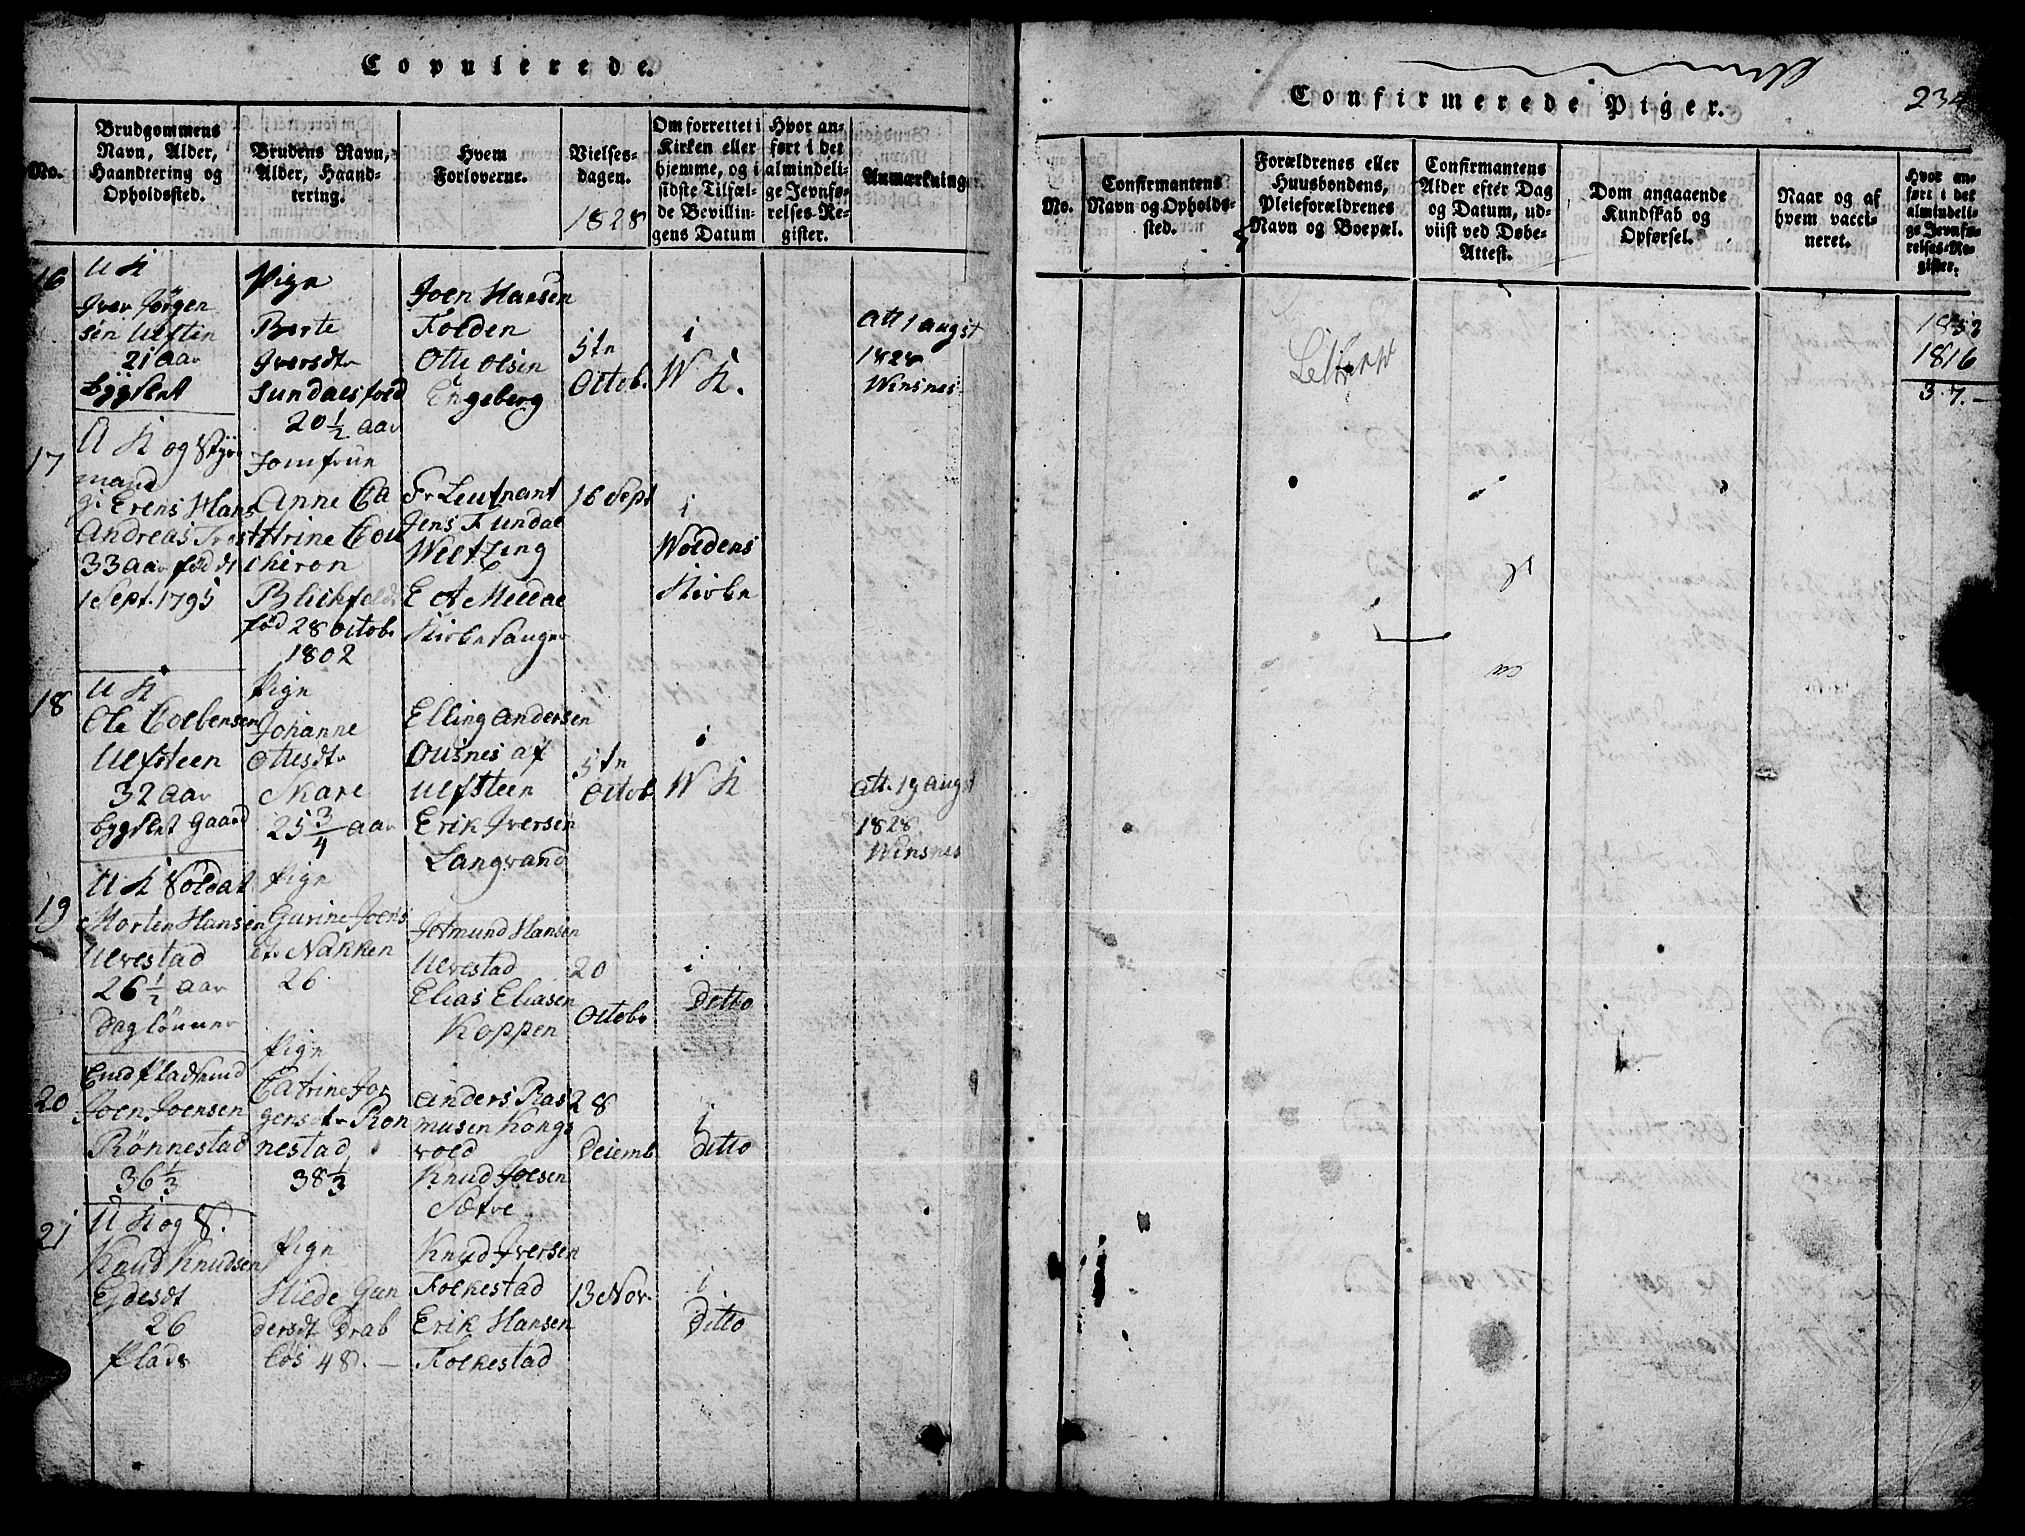 Copulerede.
No.
Brudgommens
Navn, Alder,
Haandtering og
Opholdssted.
Brudens Navn,
Alder, Haand-
tering.
Hvem
Forloverne.
Vielses-
dagen.
1828
Om forrettet i
Kirken eller
hjemme, og i
sidste Tilfæl-
de Bevillin-
gens Datum
Hvor an-
ført i det
almindeli-
ge Jevnfø-
relses-Re-
gister.
Anmærkning
16
U K
Iver Jørgen
sen Ulsten
21 aar
Bygslet
Pige
Berte
Iversdtr
Sundalsfold
20 1/2 aar
Joen Hansen
Folden
Ole Olsen
Engeberg
5te
Octob.
i
W K.
att 1 augst
1828
Winsnes
17
U K og Styr
mand
Andreas
33 aar fød d
1 Sept. 1795
Jomfrue
Anne Ca
thrine Col
cheron
Blickfeldt
fød 28 octob.
1802
Fr Leutnant
Jens Fundal
Weltzing
E A Meldal
Kirke Sanger
16 Sept
i
Woldens
Kirke
18
U K
Ole Colbensen
Ulfsteen
32 aar
bygslet Gaard
Pige
Johanne
Olesdtr
Skare
25 3/4 aar
Elling Andersen
Ousnes af
Ulfsteen
Erik Iversen
Langvand
5te
Octob
i
W K
att. 19 augst
1828
Winsnes
19
U K Soldat
Morten Hansen
Ulvestad
26 1/2 aar
Daglønner
Pige
Gurine Joens
dtr Nakken
26
Jetmund Hansen
Ulvestad
Elias Eliasen
Koppen
20
Octobr
i
Ditto
20
Joen Joensen
Rønnestad
36 1/3
Pige
Catrine Jør
gensdtr Røn
nestad
38 1/3
Anders Ras
musen Kongs
vold
Knud Joesen
Sætre
28
Decemb
i
Ditto
21
U K og S.
Knud Knudsen
Edesdt
26
Plads
Pige
Hilde Gun
dersdt Drab
løs 48. —
Knud Iversen
Folkestad
Erik Hansen
Folkestad
13 Nov.
i
Ditto
Confirmerede Piger.
234
No.
Confirmantens
Navn og Opholds-
sted.
Forældrenes eller
Huusbondens,
Pleieforældrenes
Navn og Boepæl.
Confirmantens
Alder efter Dag
og Datum, ud-
viist ved Døbe-
Attest.
Dom angaaende
Kundskab og
Opførsel.
Naar og af
hvem vacci-
neret.
Hvor an-
ført i det
almindeli-
ge Jevnfø-
relses-Re-
gister.
1853
1816
37.—